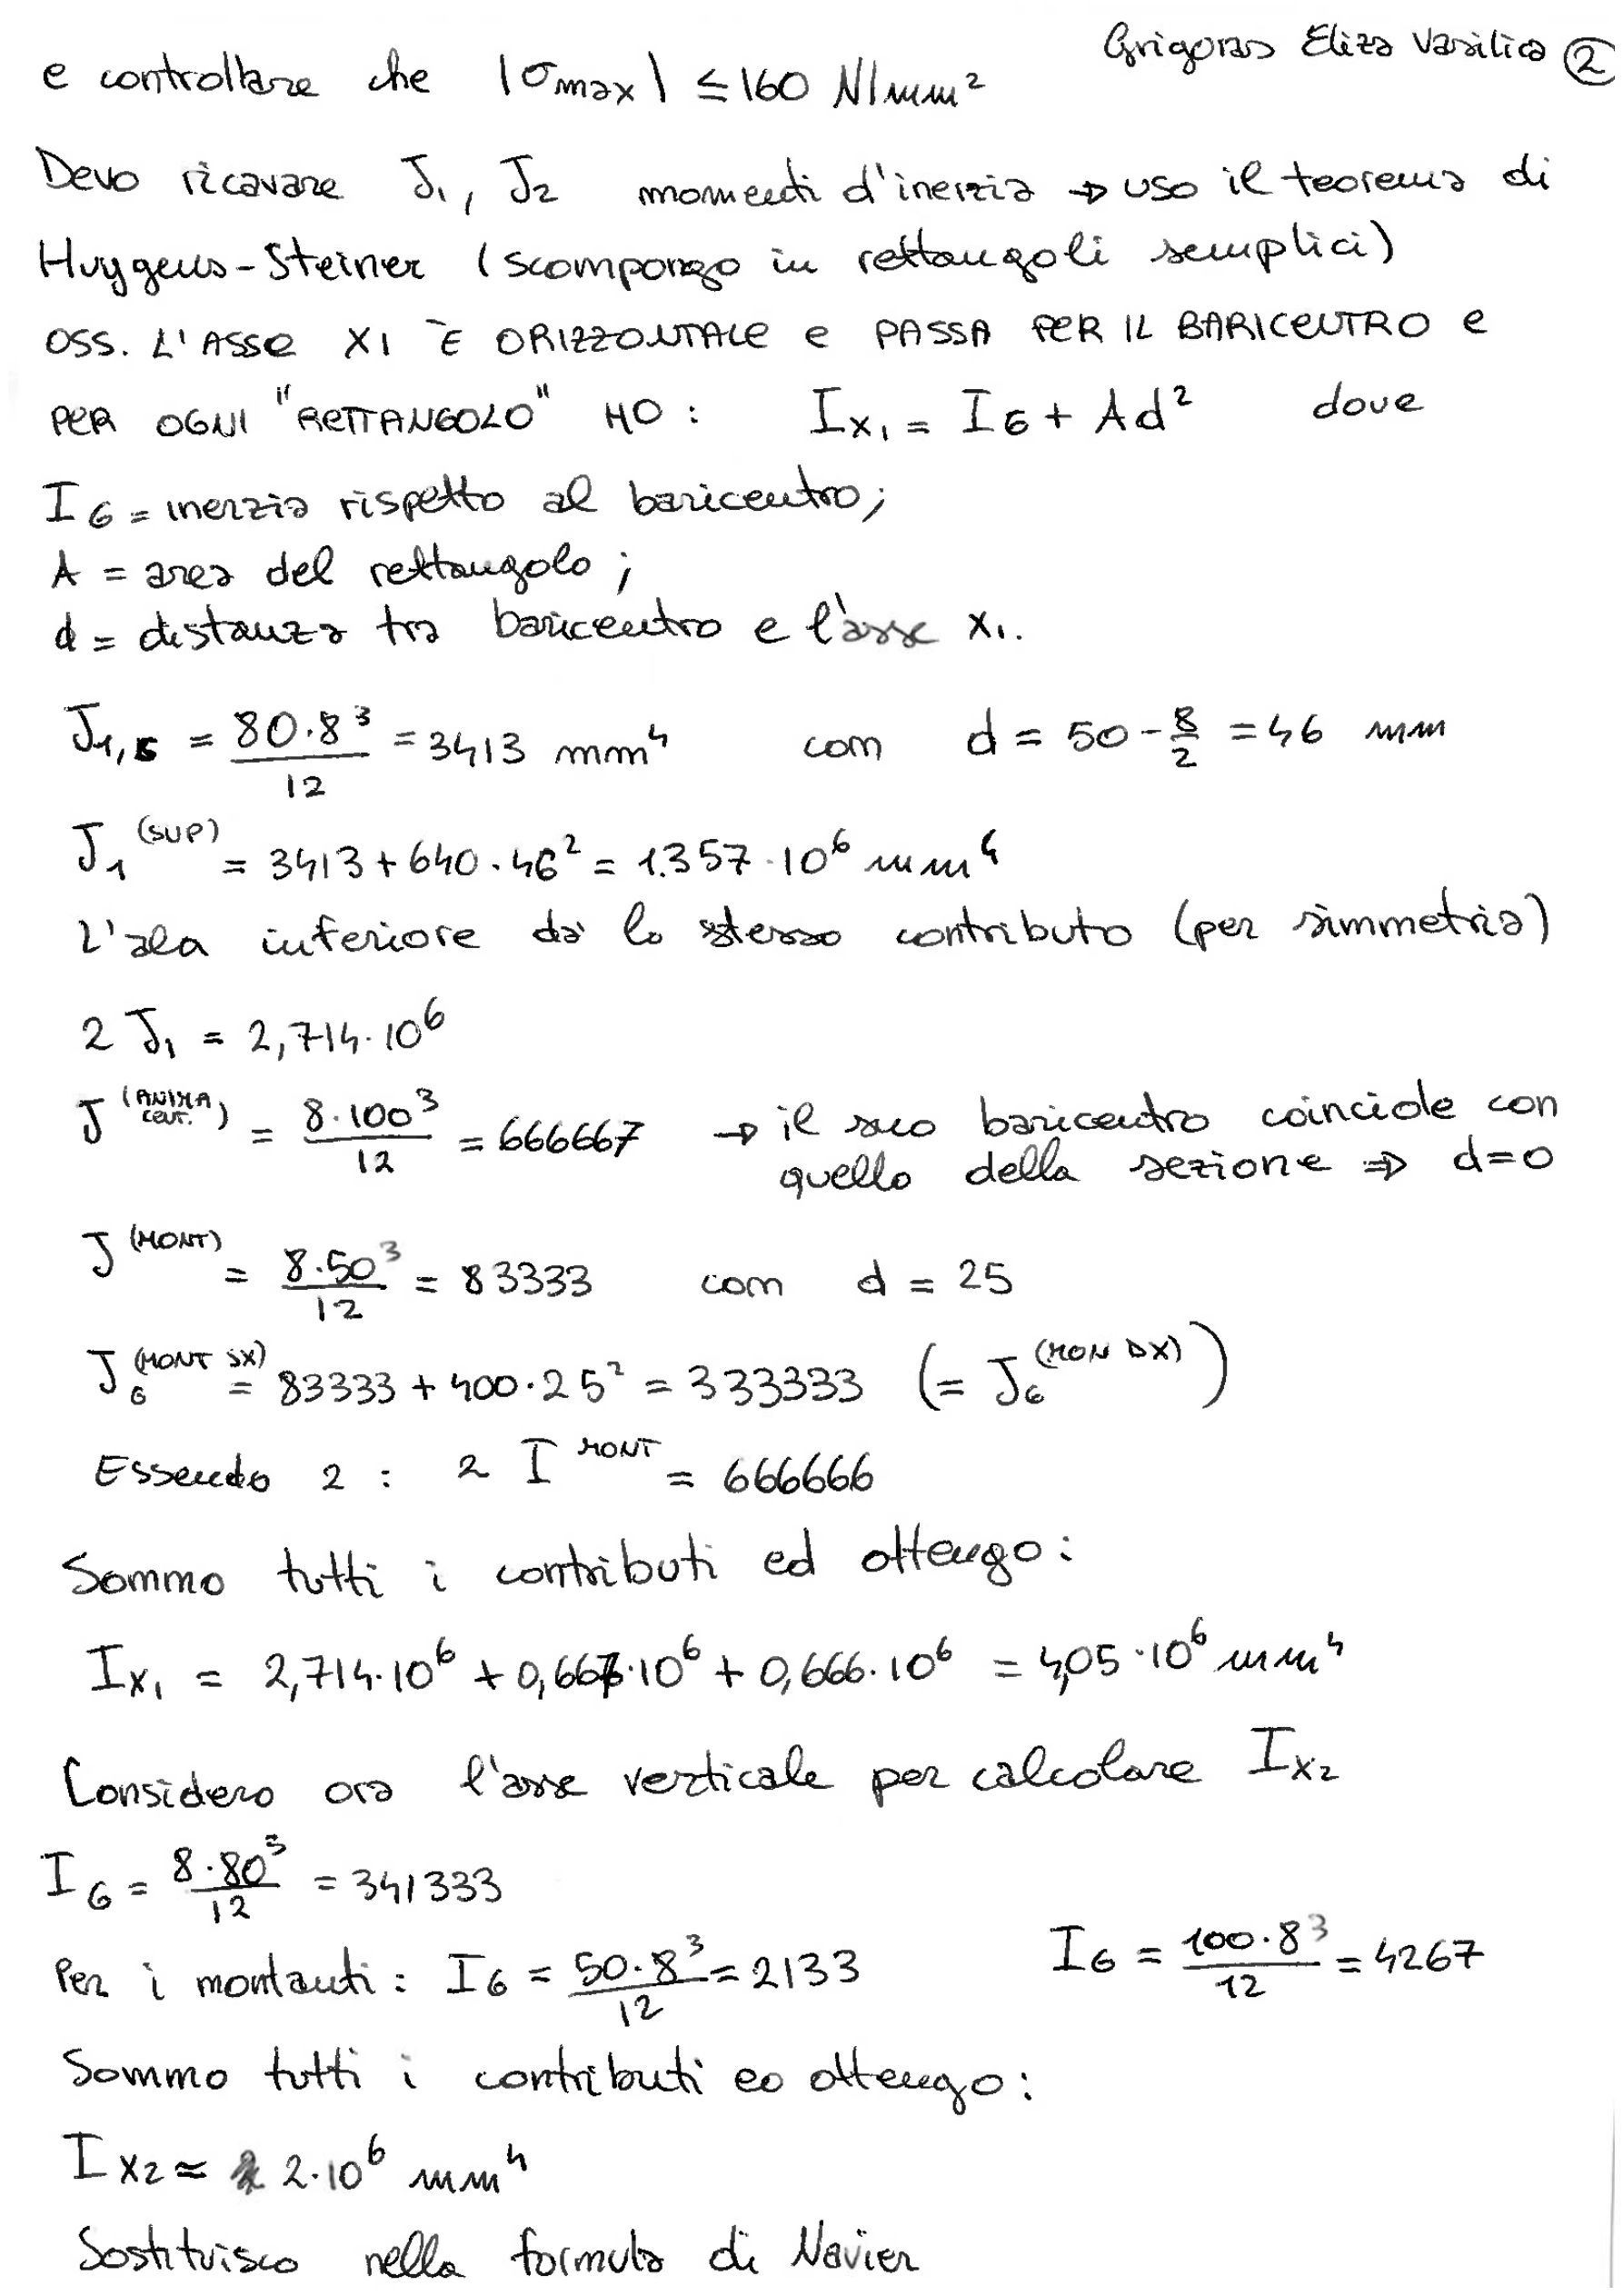 Grigoras Eliza Vasilica ②
e controllare che |σmax| ≤ 160 N/mm²
Devo ricavare J₁, J₂ momenti d'inerzia → uso il teorema di
Huygens-Steiner (scompongo in rettangoli semplici)
OSS. L'ASSE X1 È ORIZZONTALE e PASSA PER IL BARICENTRO e
PER OGNI "RETTANGOLO" HO: Ix₁ = IG + Ad² dove
IG = inerzia rispetto al baricentro;
A = area del rettangolo;
d = distanza tra baricentro e l'asse x₁.
J₁,G = 80·8³/12 = 3413 mm⁴ com d = 50 - 8/2 = 46 mm
J₁^(SUP) = 3413 + 640·46² = 1.357·10⁶ mm⁴
L'ala inferiore dà lo stesso contributo (per simmetria)
2 J₁ = 2,714·10⁶
J^(ANIMA CENT.) = 8·100³/12 = 666667 → il suo baricentro coincide con
quello della sezione ⇒ d=0
J^(MONT) = 8·50³/12 = 83333 com d = 25
J_G^(MONT SX) = 83333 + 400·25² = 333333 (= J_G^(MON DX))
Essendo 2 : 2 I^MONT = 666666
Sommo tutti i contributi ed ottengo:
Ix₁ = 2,714·10⁶ + 0,667·10⁶ + 0,666·10⁶ = 4,05·10⁶ mm⁴
Considero ora l'asse verticale per calcolare Ix₂
IG = 8·80³/12 = 341333
Per i montanti: IG = 50·8³/12 = 2133 IG = 100·8³/12 = 4267
Sommo tutti i contributi eo ottengo:
Ix₂ ≈ 2·10⁶ mm⁴
Sostituisco nella formula di Navier